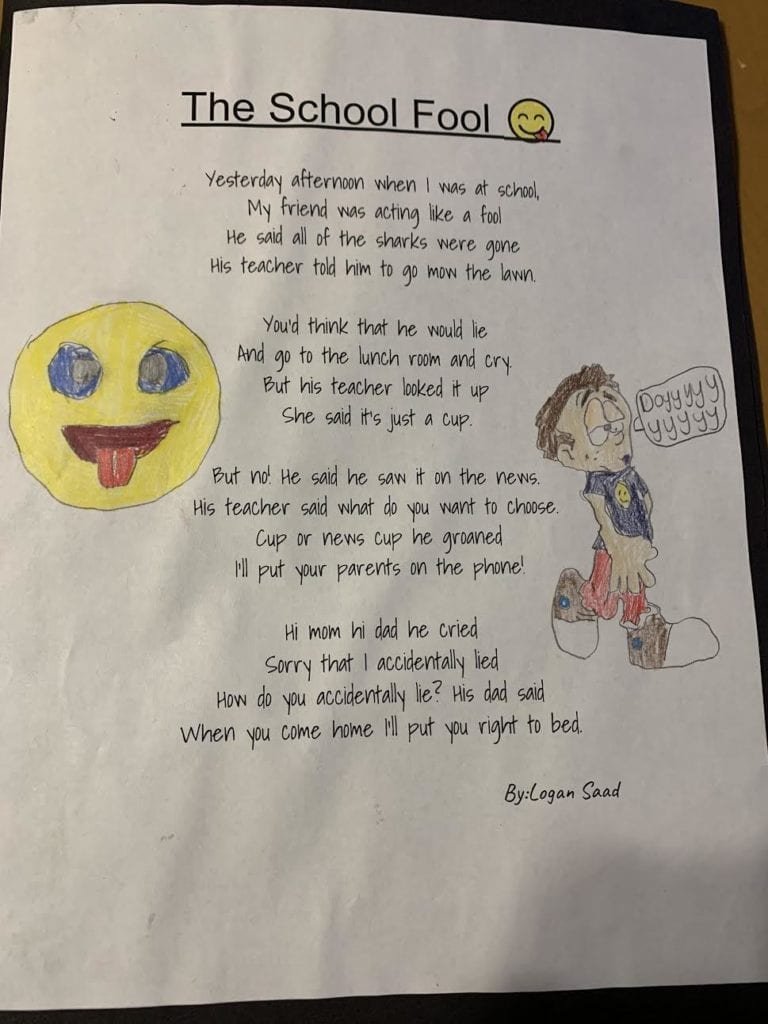 The School Fool
Yesterday afternoon when I was at school,
My friend was acting like a fool
He said all of the sharks were gone
His teacher told him to go mow the lawn.
You'd think that he would lie
And go to the lunch room and cry.
But his teacher looked it up
She said it's just a cup.
But no! He said he saw it on the news.
His teacher said what do you want to choose.
Cup or news cup he groaned
I'll put your parents on the phone!
Hi mom hi dad he cried
Sorry that I accidentally lied
How do you accidentally lie? His dad said
When you come home I'll put you right to bed.
By:Logan Saad
Dayyyyy
yyyyyy